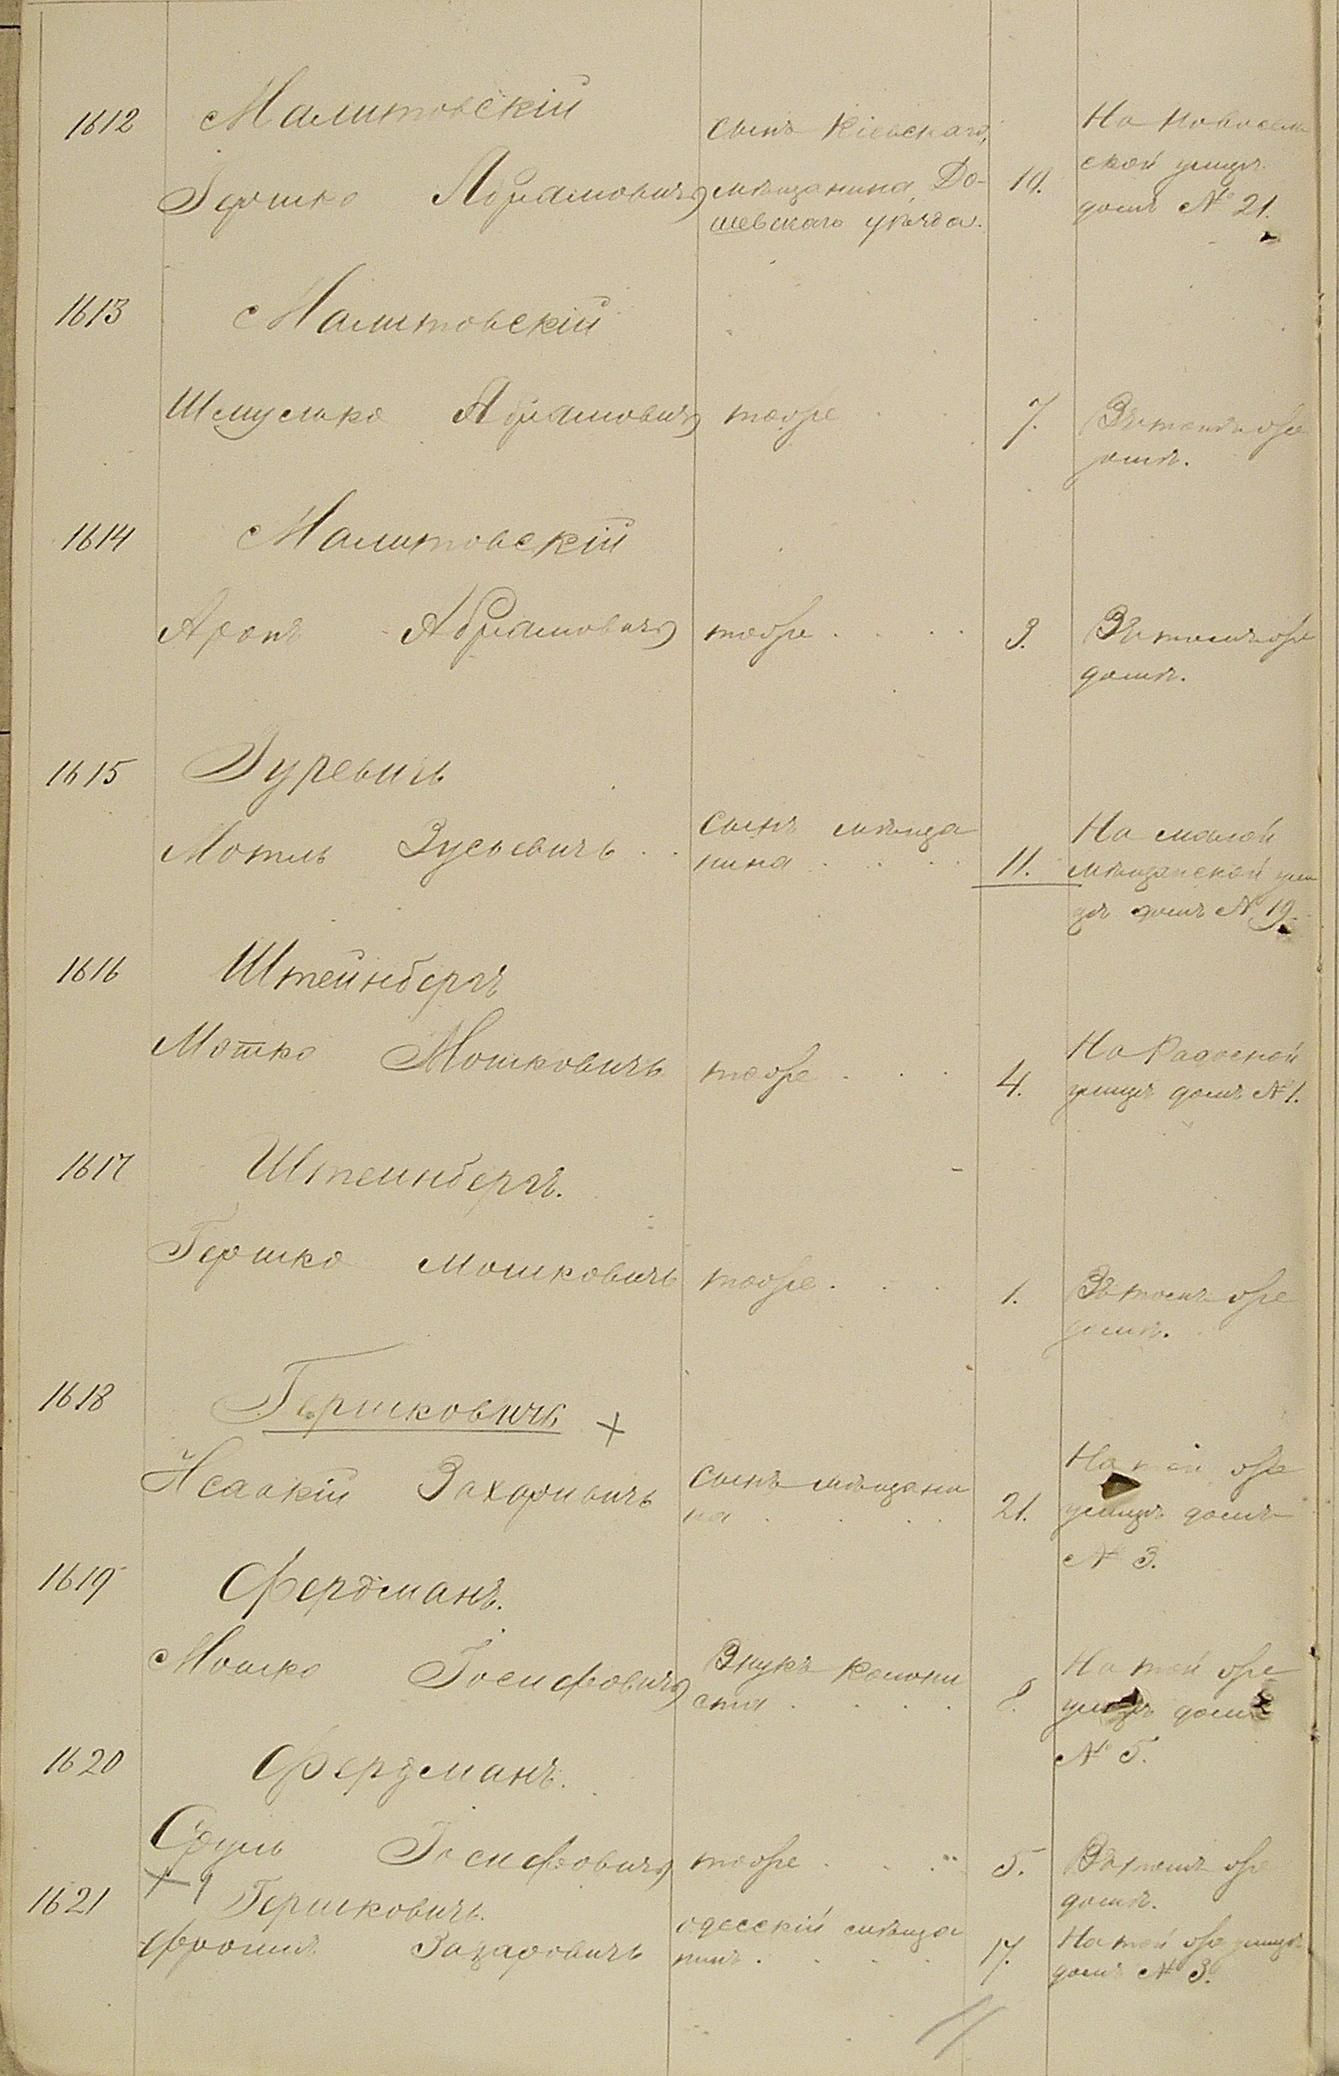 1612 Малитовскій
Гершко Абрамовичъ
сынъ Кіевскаго
мѣщанина
уѣзда.
10.
На Новосель
ской улицѣ
домъ № 21.
1613 Малитовскій
Шмулько Абрамовичъ тоже 7. Въ томъ же
домѣ.
1614 Малитовскій
Аронъ Абрамовичъ тоже 3. Въ томъ же
домѣ.
1615 Гуревичъ
Мотль Зусьевичъ
сынъ мѣща
нина
11.
На малой
мѣщанской ули
цѣ домъ № 19.
1616 Штейнбергъ
Мотко Мошковичъ тоже 4.
На
улицѣ домъ № 1.
1617 Штейнбергъ.
Гершко Мошковичъ тоже 1. Въ томъ же
домѣ.
1618 Гершковичъ
Исаакій Захаровичъ
сынъ мѣщани
на
21.
На той же
улицѣ домъ
№ 3.
1619 Фердманъ.
Мошко Іосифовичъ
Внукъ колони
ста
8.
На той же
улицѣ домъ
№ 5.
1620 Фердманъ.
Сруль Іосифовичъ тоже 5. Въ томъ же
домѣ.
1621 Гершковичъ
Фроимъ
одесскій мѣща
нинъ
17.
На той же улицѣ
домъ № 3.